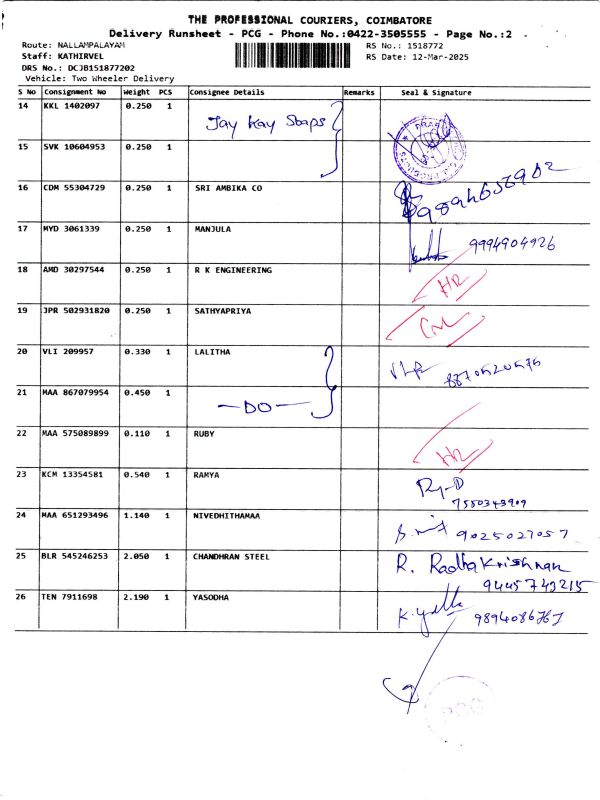 THE PROFESSIONAL COURIERS, COIMBATORE
Delivery Runsheet - PCG - Phone No.:0422-3505555 - Page No.:2
Route: NALLAMPALAYAM RS No.: 1518772
Staff: KATHIRVEL RS Date: 12-Mar-2025
DRS No.: DCJB1518877202
Vehicle: Two Wheeler Delivery
S No Consignment No Weight PCS Consignee Details Remarks Seal & Signature
14 KKL 1402097 0.250 1 Jay Kay
15 SVK 10604953 0.250 1
16 CDM 55304729 0.250 1 SRI AMBIKA CO
17 MYD 3061339 0.250 1 MANJULA 9994904926
18 AMD 30297544 0.250 1 R K ENGINEERING
19 JPR 502931820 0.250 1 SATHYAPRIYA
20 VLI 209957 0.330 1 LALITHA
21 MAA 867079954 0.450 1 -DO-
22 MAA 575089899 0.110 1 RUBY
23 KCM 13354581 0.540 1 RAMYA
24 MAA 651293496 1.140 1 NIVEDHITHAMAA 9025027057
25 BLR 545246253 2.050 1 CHANDHRAN STEEL R. Radhakrishnan
9445743215
26 TEN 7911698 2.190 1 YASODHA